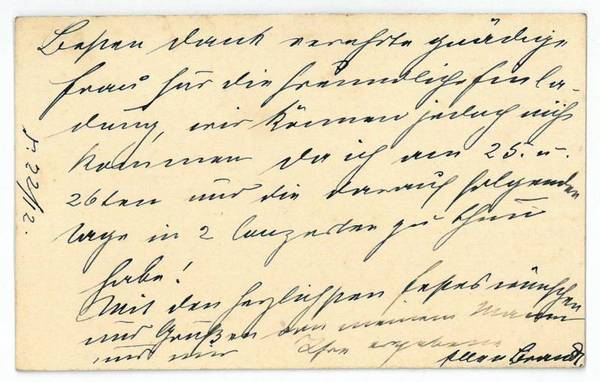 Besten dank verehrte gnädige
Frau für die freundliche Einla-
dung, wir können jedoch nicht
kommen da ich am 25. u.
26ten und die darauf folgenden
tage in 2 Conzerten zu thun
habe!
Mit den herzlichsten festeswünschen
und Grüßen von meinem Mann
und mir Ihre ergebene
Ellen Brandt.
d. 22/12.